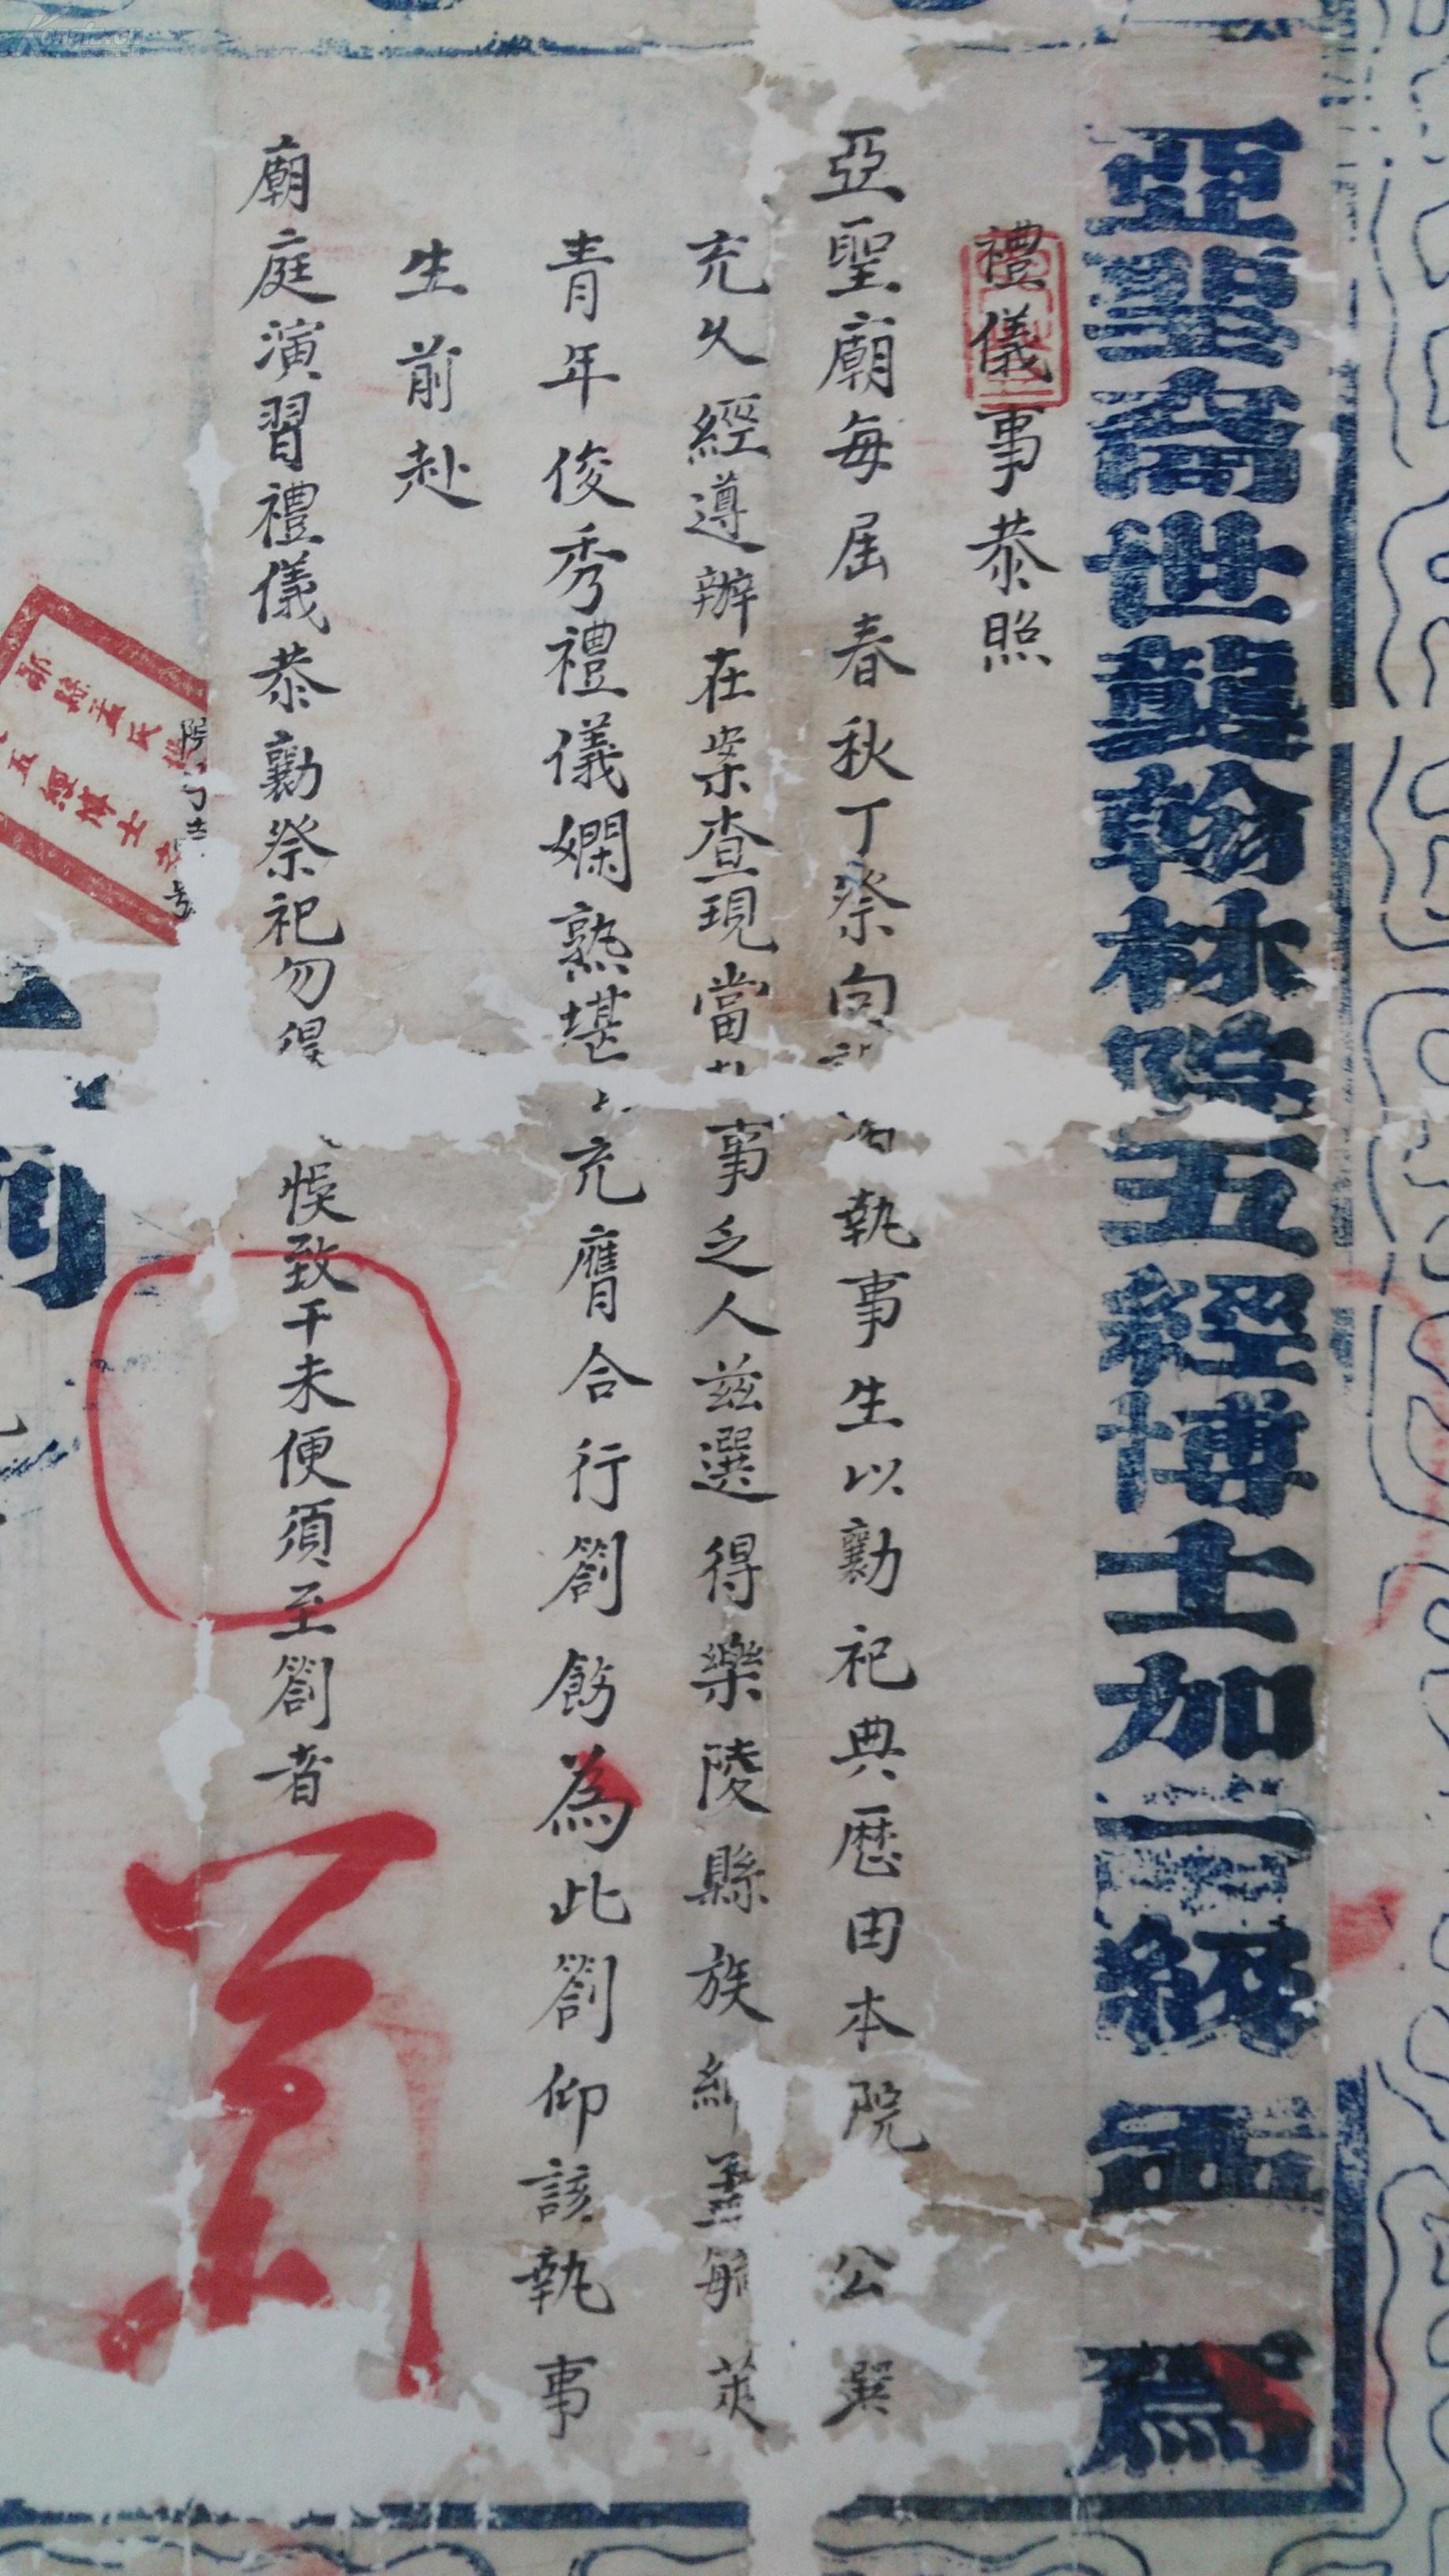 亞聖裔世襲翰林院五經博士加三級孟 為
禮儀事恭照
亞聖廟每屆春秋丁祭向 執事生以勷祀典歷由本院 公選
充久經遵辦在案查現當 事乏人茲選得樂陵縣族 孟毓英
青年俊秀禮儀嫻熟堪 充膺合行劄飭為此劄仰該執事
生前赴
廟庭演習禮儀恭勷祭祀勿得 悞致干未便須至劄者